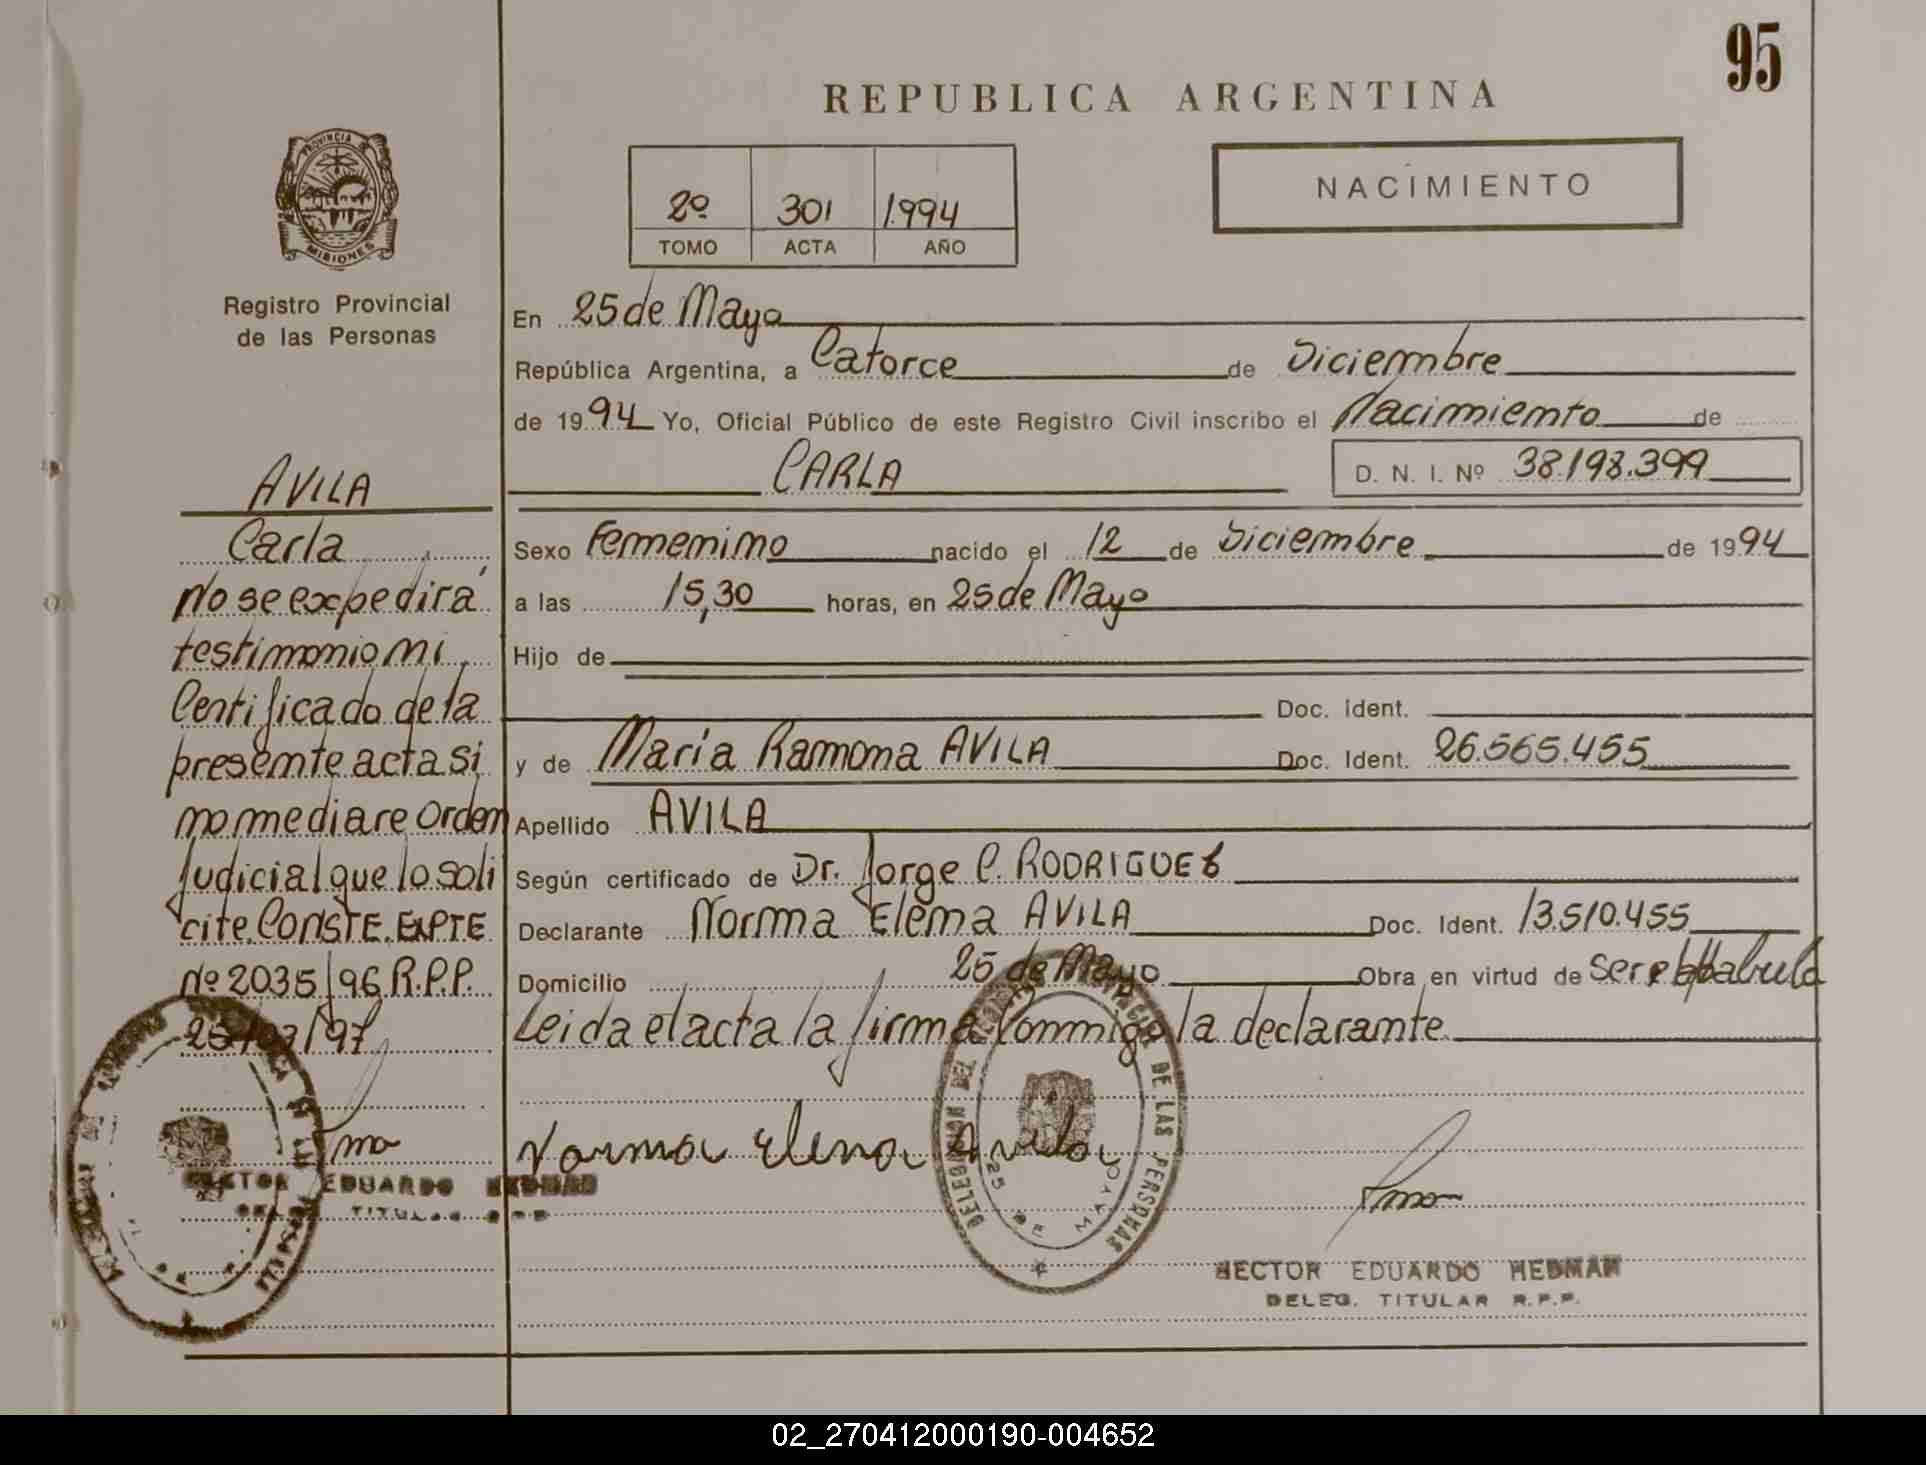 95
REPUBLICA ARGENTINA
PROVINCIA DE
MISIONES
Registro Provincial
de las Personas
2º 301 1994
TOMO ACTA AÑO
NACIMIENTO
En 25 de Mayo
República Argentina, a Catorce de Diciembre
de 1994 Yo, Oficial Público de este Registro Civil inscribo el Nacimiento de
CARLA D. N. I. Nº 38.198.399
Sexo Femenino nacido el 12 de Diciembre de 1994
a las 15,30 horas, en 25 de Mayo
Hijo de
Doc. Ident.
y de María Ramona AVILA Doc. Ident. 26.565.455
Apellido AVILA
Según certificado de Dr. Jorge C. RODRIGUEZ
Declarante Norma Elena AVILA Doc. Ident. 13.510.455
Domicilio 25 de Mayo Obra en virtud de ser
Leida el acta la firma Conmigo la declarante
Norma Elena Avila
DELEGACION DEL REGISTRO PROVINCIAL DE LAS PERSONAS
25 DE MAYO
HECTOR EDUARDO HEDMAN
DELEG. TITULAR R.P.P.
AVILA
Carla
No se expedirá
testimonio ni
Certificado de la
presente acta si
no mediare Orden
Judicial que lo soli
cite. CONSTE. EXPTE
Nº 2035/96 R.P.P.
HECTOR EDUARDO HEDMAN
TITULAR
02_270412000190-004652